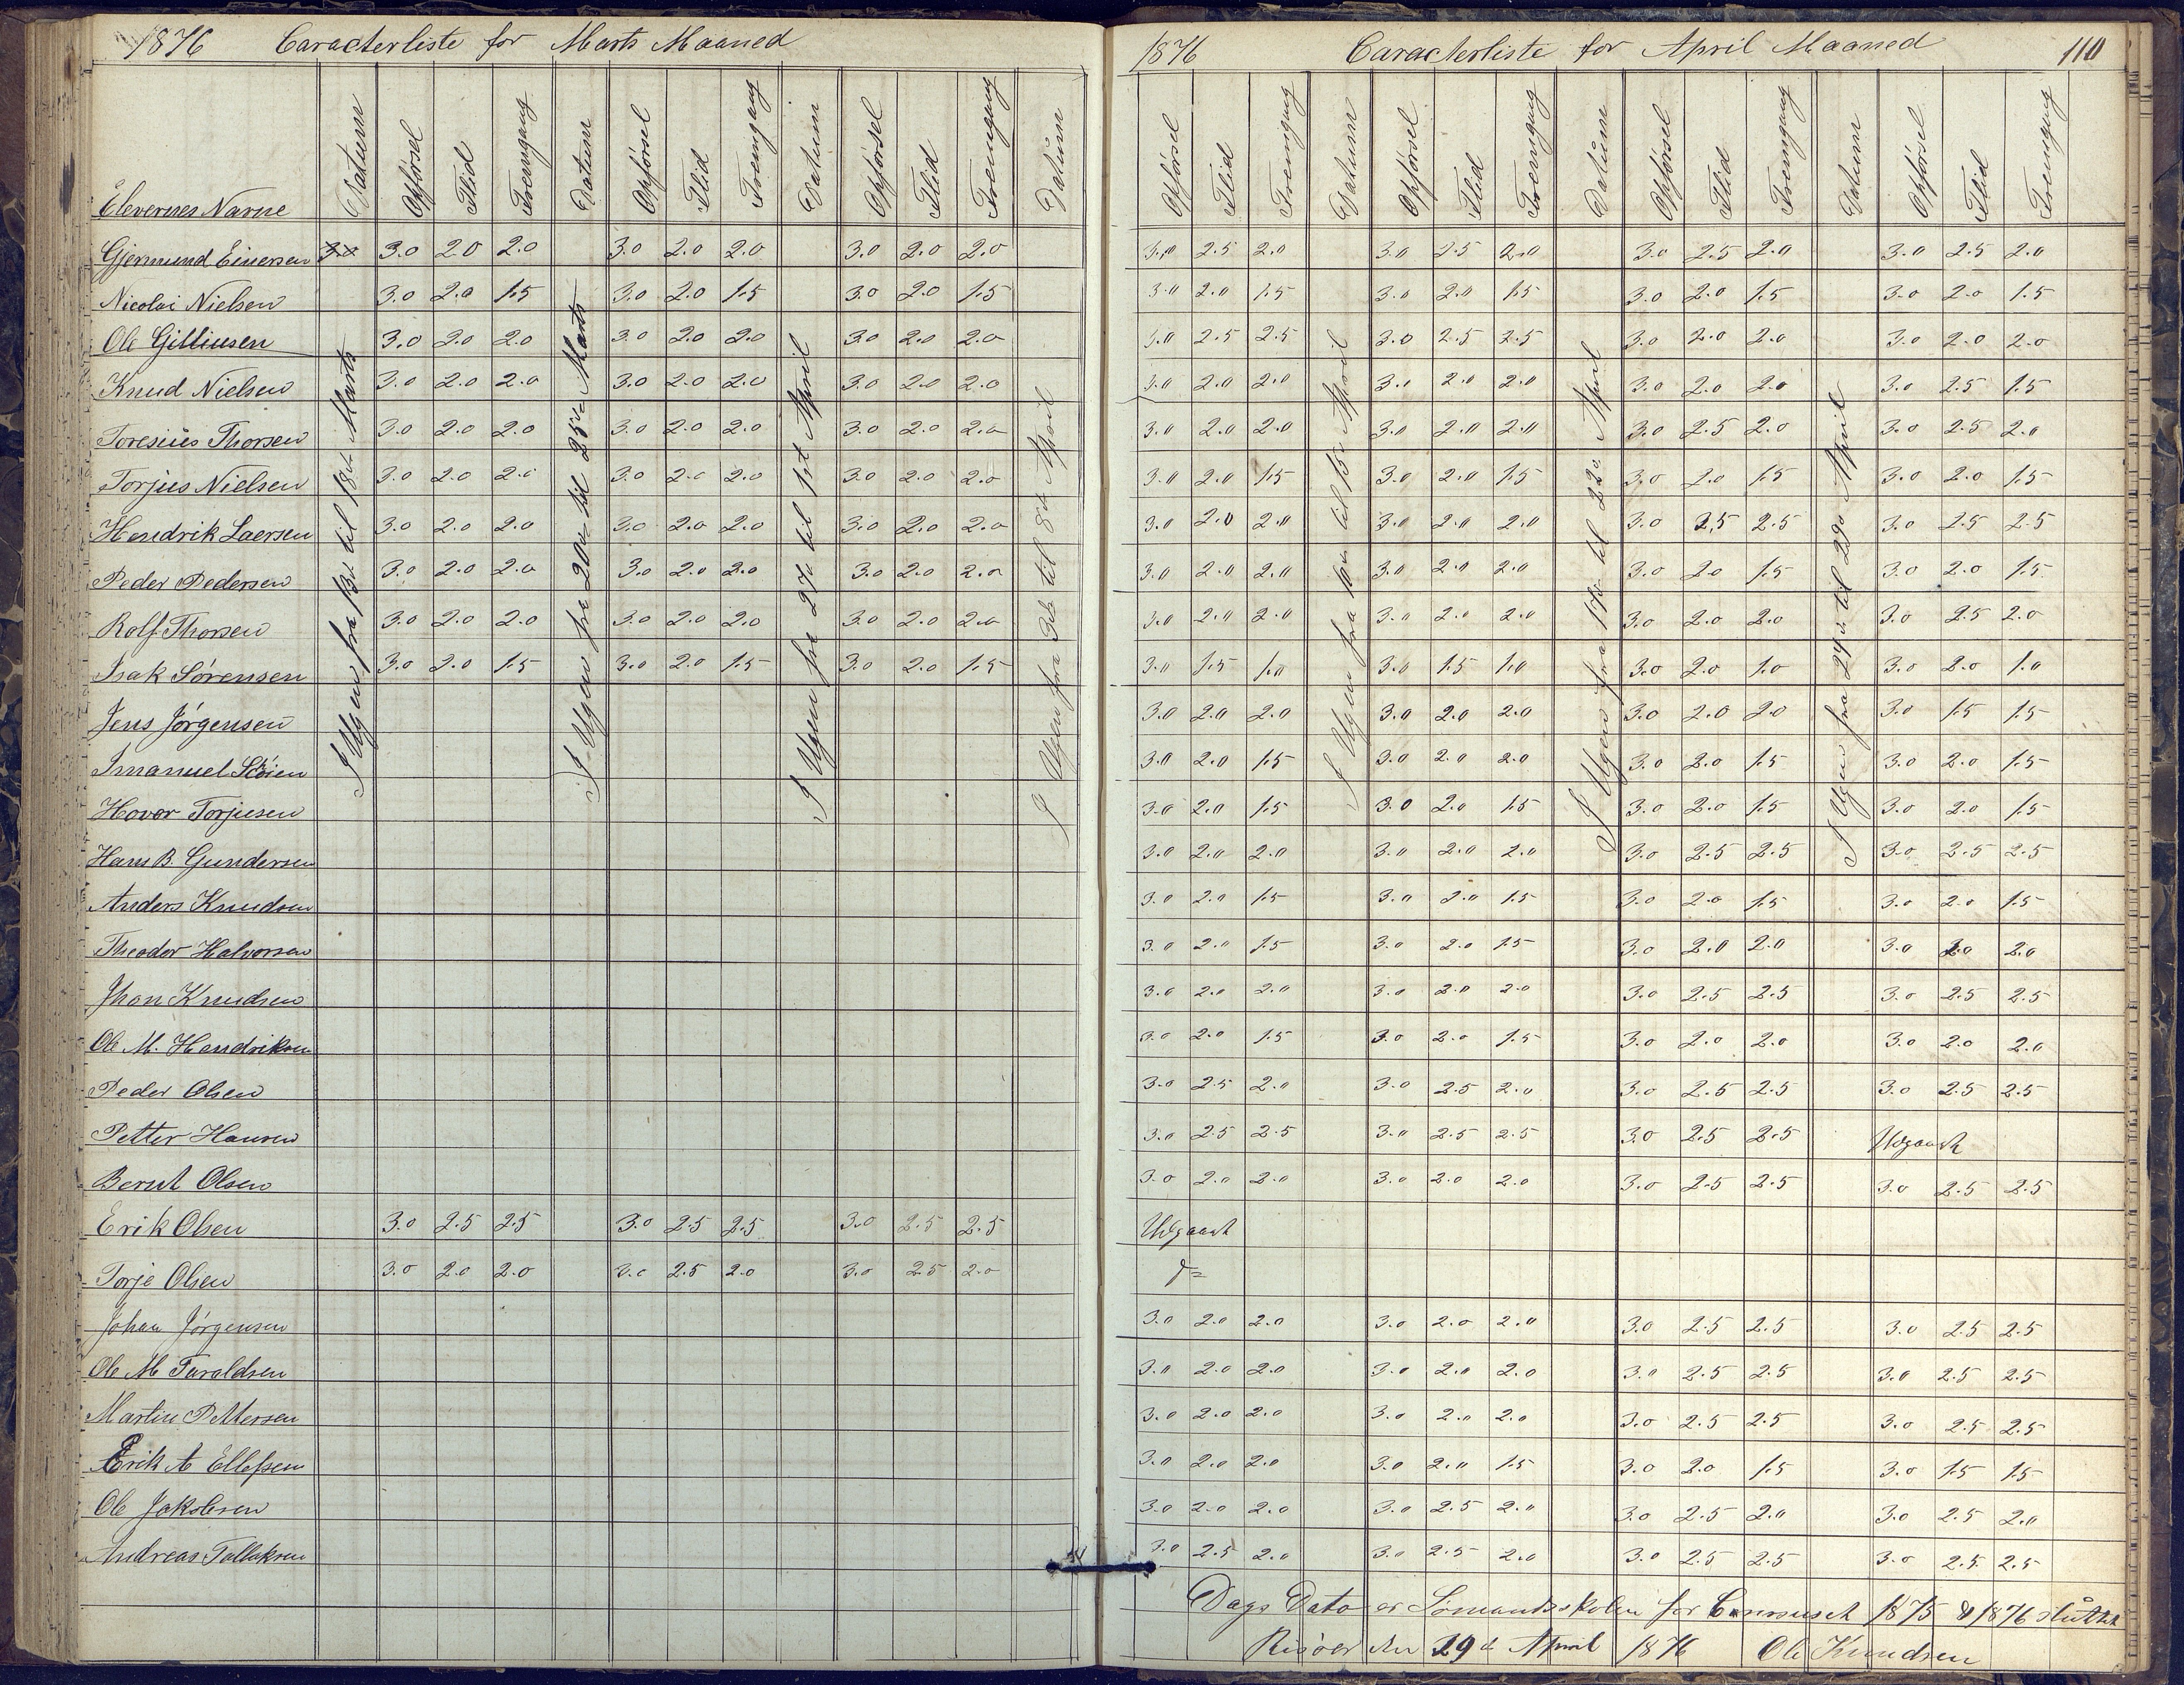 1876 Caracterliste for Marts Maaned
Elevernes Navne Datum Opförsel Flid Fremgang Datum Opförsel Flid Fremgang Datum Opförsel Flid Fremgang Datum
Gjermund Einersen 3.0 2.0 2.0 3.0 2.0 2.0 3.0 2.0 2.0
Nicolai Nielsen 3.0 2.0 1.5 3.0 2.0 1.5 3.0 2.0 1.5
Ole Gilliusen 3.0 2.0 2.0 3.0 2.0 2.0 3.0 2.0 2.0
Knud Nielsen 3.0 2.0 2.0 3.0 2.0 2.0 3.0 2.0 2.0
Toresius Thorsen 3.0 2.0 2.0 3.0 2.0 2.0 3.0 2.0 2.0
Torjus Nielsen 3.0 2.0 2.0 3.0 2.0 2.0 3.0 2.0 2.0
Hendrik Laersen 3.0 2.0 2.0 3.0 2.0 2.0 3.0 2.0 2.0
Peder Pedersen 3.0 2.0 2.0 3.0 2.0 2.0 3.0 2.0 2.0
Rolf Thorsen 3.0 2.0 2.0 3.0 2.0 2.0 3.0 2.0 2.0
Isak Sörensen 3.0 2.0 1.5 3.0 2.0 1.5 3.0 2.0 1.5
Jens Jörgensen
Imanuel
Hovor Torjusen
Hans B. Gundersen
Anders Knudsen
Theodor Halvorsen
Jhon Knudsen
Ole M. Hendriksen
Peder Olsen
Petter Hansen
Bernt Olsen
Erik Olsen 3.0 2.5 2.5 3.0 2.5 2.5 3.0 2.5 2.5
Torje Olsen 3.0 2.0 2.0 3.0 2.5 2.0 3.0 2.5 2.0
Johan Jörgensen
Ole M Taraldsen
Martin Pettersen
Erik A Ellefsen
Ole Jakobsen
Andreas Tellaksen
I Ugen fra 13de til 18de Marts
I Ugen fra 20de til 25de Marts
I Ugen fra 27de til 1st April
I Ugen fra 3de til 8de April
1876 Caracterliste for April Maaned 110
Opförsel Flid Fremgang Datum Opförsel Flid Fremgang Datum Opförsel Flid Fremgang Datum Opförsel Flid Fremgang
3.0 2.5 2.0 3.0 2.5 2.0 3.0 2.5 2.0 3.0 2.5 2.0
3.0 2.0 1.5 3.0 2.0 1.5 3.0 2.0 1.5 3.0 2.0 1.5
3.0 2.5 2.5 3.0 2.5 2.5 3.0 2.0 2.0 3.0 2.0 2.0
3.0 2.0 2.0 3.0 2.0 2.0 3.0 2.0 2.0 3.0 2.5 1.5
3.0 2.0 2.0 3.0 2.0 2.0 3.0 2.5 2.0 3.0 2.5 2.0
3.0 2.0 1.5 3.0 2.0 1.5 3.0 2.0 1.5 3.0 2.0 1.5
3.0 2.0 2.0 3.0 2.0 2.0 3.0 2.5 2.5 3.0 2.5 2.5
3.0 2.0 2.0 3.0 2.0 2.0 3.0 2.0 1.5 3.0 2.0 1.5
3.0 2.0 2.0 3.0 2.0 2.0 3.0 2.0 2.0 3.0 2.5 2.0
3.0 1.5 1.0 3.0 1.5 1.0 3.0 2.0 1.0 3.0 2.0 1.0
3.0 2.0 2.0 3.0 2.0 2.0 3.0 2.0 2.0 3.0 1.5 1.5
3.0 2.0 1.5 3.0 2.0 2.0 3.0 2.0 1.5 3.0 2.0 1.5
3.0 2.0 1.5 3.0 2.0 1.5 3.0 2.0 1.5 3.0 2.0 1.5
3.0 2.0 2.0 3.0 2.0 2.0 3.0 2.5 2.5 3.0 2.5 2.5
3.0 2.0 1.5 3.0 2.0 1.5 3.0 2.0 1.5 3.0 2.0 1.5
3.0 2.0 1.5 3.0 2.0 1.5 3.0 2.0 2.0 3.0 2.0 2.0
3.0 2.0 2.0 3.0 2.0 2.0 3.0 2.5 2.5 3.0 2.5 2.5
3.0 2.0 1.5 3.0 2.0 1.5 3.0 2.0 2.0 3.0 2.0 2.0
3.0 2.5 2.0 3.0 2.5 2.0 3.0 2.5 2.5 3.0 2.5 2.5
3.0 2.5 2.5 3.0 2.5 2.5 3.0 2.5 2.5 Udgaaet
3.0 2.0 2.0 3.0 2.0 2.0 3.0 2.5 2.5 3.0 2.5 2.5
Udgaaet
d=
3.0 2.0 2.0 3.0 2.0 2.0 3.0 2.5 2.5 3.0 2.5 2.5
3.0 2.0 2.0 3.0 2.0 2.0 3.0 2.5 2.5 3.0 2.5 2.5
3.0 2.0 2.0 3.0 2.0 2.0 3.0 2.5 2.5 3.0 2.5 2.5
3.0 2.0 2.0 3.0 2.0 1.5 3.0 2.0 1.5 3.0 1.5 1.5
3.0 2.0 2.0 3.0 2.5 2.0 3.0 2.5 2.0 3.0 2.5 2.0
3.0 2.5 2.0 3.0 2.5 2.0 3.0 2.5 2.5 3.0 2.5 2.5
I Ugen fra 10de til 15de April
I Ugen fra 17de til 22de April
I Ugen fra 24de til 29de April
Dags Dato er Sömandsskolen for Coursuset 1875 & 1876 sluttet
Risöer den 29de April 1876 Ole Knudsen